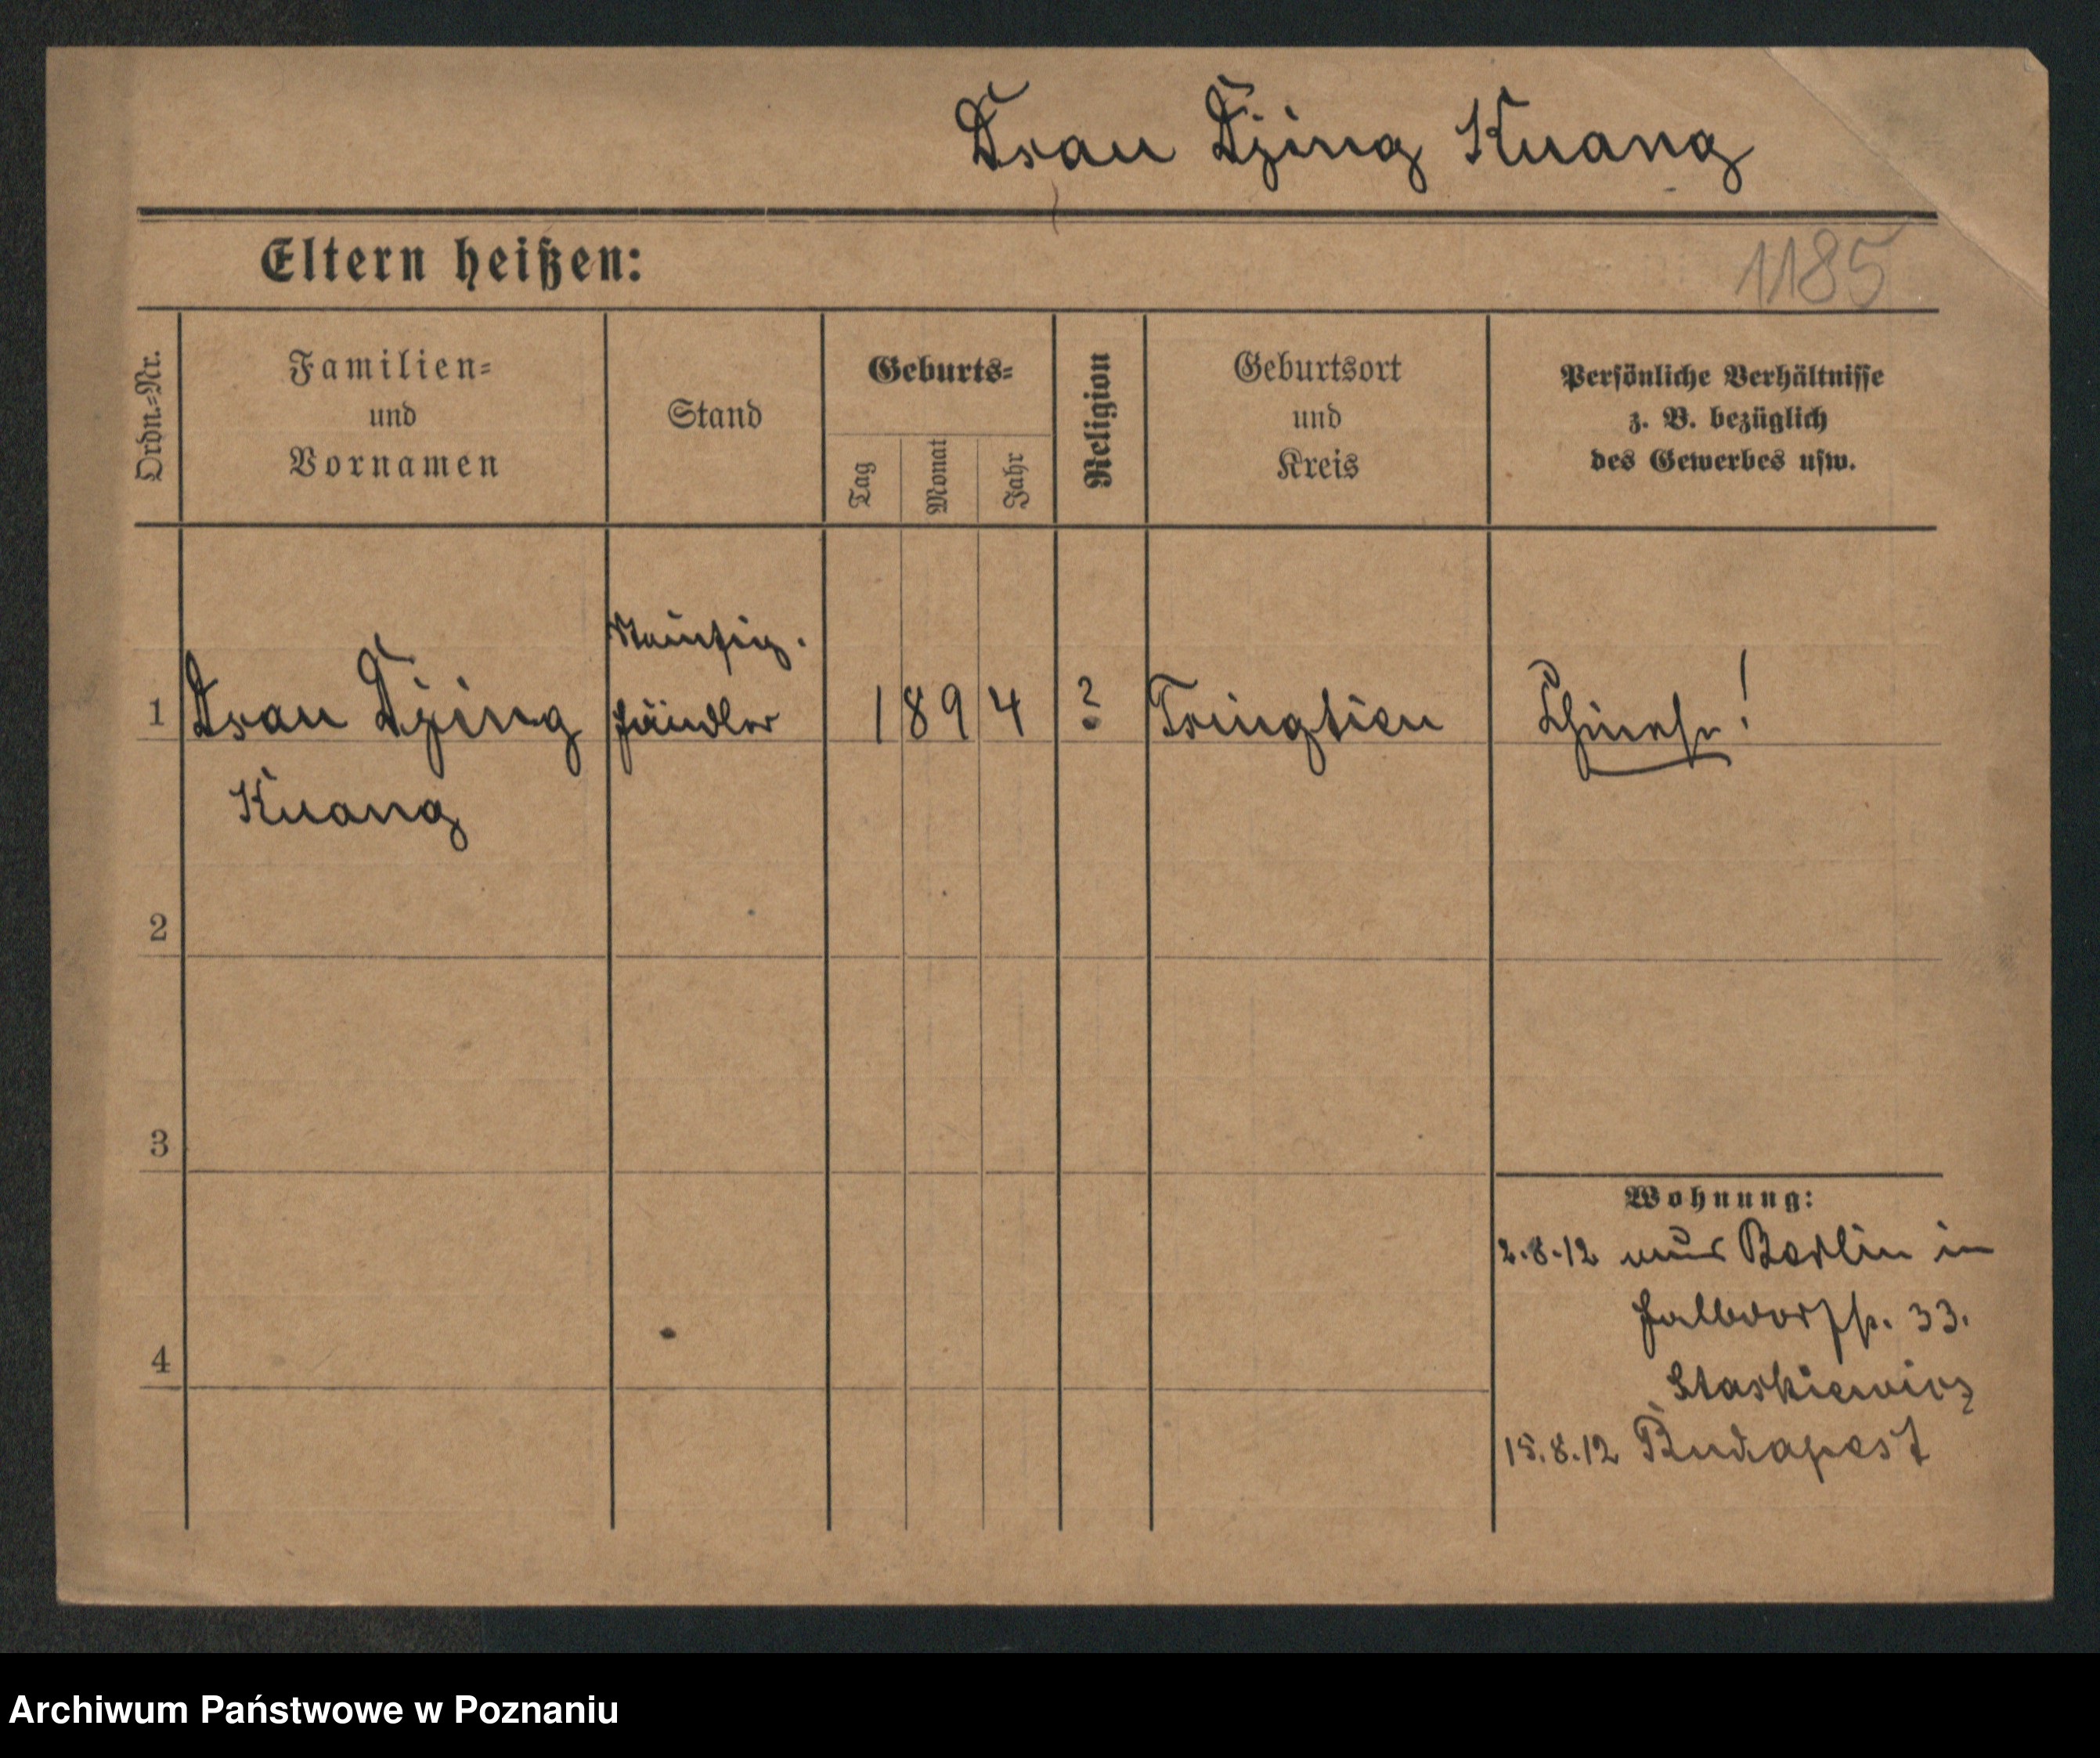 Dsau Djing Kuang
Eltern heißen:
1185
Ordn.-Nr.
Familien-
und
Vornamen
Stand
Geburts-
Tag
Monat
Jahr
Religion
Geburtsort
und
Kreis
Persönliche Verhältnisse
z. B. bezüglich
des Gewerbes usw.
1
Dsau Djing
Kuang
händler
1894
?
Tsingtien
Chinese!
2
3
4
Wohnung:
2.8.12 aus Berlin in
Halbdorfstr. 33.
Staskiewicz
15.8.12 Budapest
Archiwum Państwowe w Poznaniu